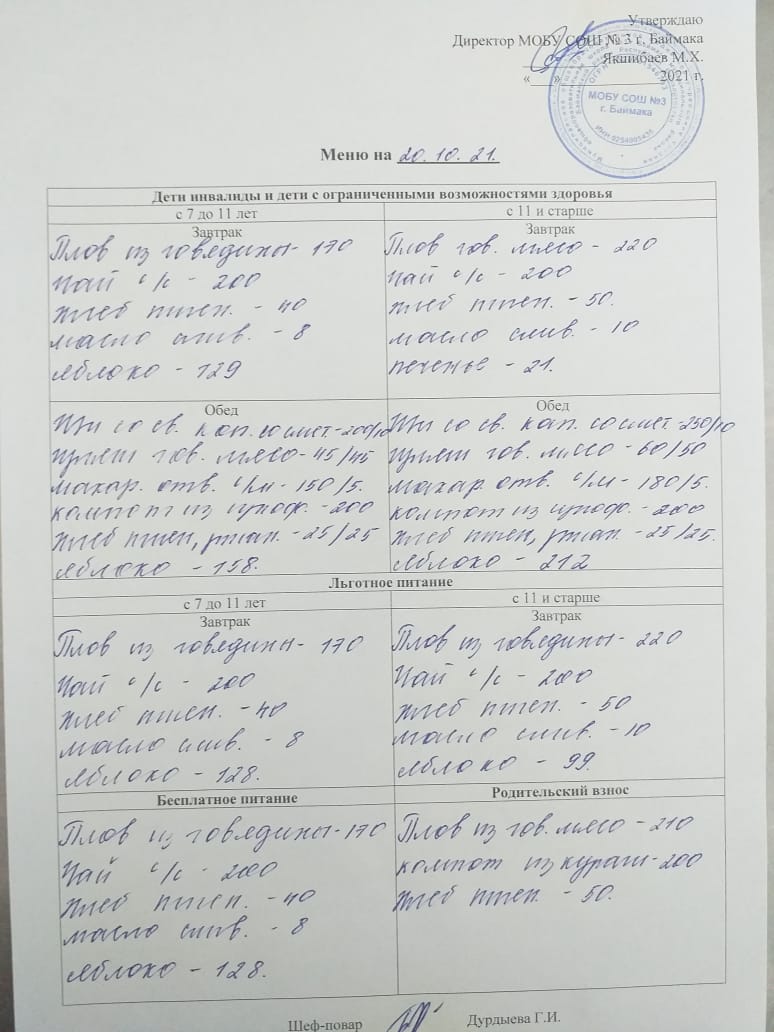 Утверждаю
Директор МОБУ СОШ № 3 г. Баймака
Якшибаев М.Х.
«___»______________2021 г.
МОБУ СОШ №3
г. Баймака
Меню на 20.10.21.
Дети инвалиды и дети с ограниченными возможностями здоровья
с 7 до 11 лет
Завтрак
Плов из говядины - 170
Чай с/с - 200
Хлеб пшен. - 40
масло слив. - 8
яблоко - 129
с 11 и старше
Завтрак
Плов гов. мясо - 220
Чай с/с - 200
Хлеб пшен. - 50.
масло слив. - 10
печенье - 21.
Обед
Щи со св. кап. со смет. - 200/10
гуляш гов. мясо - 45/45
макар. отв. с/м - 150/5.
компот из сухоф. - 200
Хлеб пшен, ржан. - 25/25
яблоко - 158.
Обед
Щи со св. кап. со смет. - 250/10
гуляш гов. мясо - 60/50
макар. отв. с/м - 180/5.
компот из сухоф. - 200
Хлеб пшен, ржан. - 25/25.
яблоко - 212
Льготное питание
с 7 до 11 лет
Завтрак
Плов из говядины - 170
Чай с/с - 200
Хлеб пшен. - 40
масло слив. - 8
яблоко - 128.
с 11 и старше
Завтрак
Плов из говядины - 220
Чай с/с - 200
Хлеб пшен. - 50
масло слив. - 10
яблоко - 99.
Бесплатное питание
Плов из говядины - 170
Чай с/с - 200
Хлеб пшен. - 40
масло слив. - 8
яблоко - 128.
Родительский взнос
Плов из гов. мясо - 210
компот из кураги - 200
Хлеб пшен. - 50.
Шеф-повар Дурдыева Г.И.